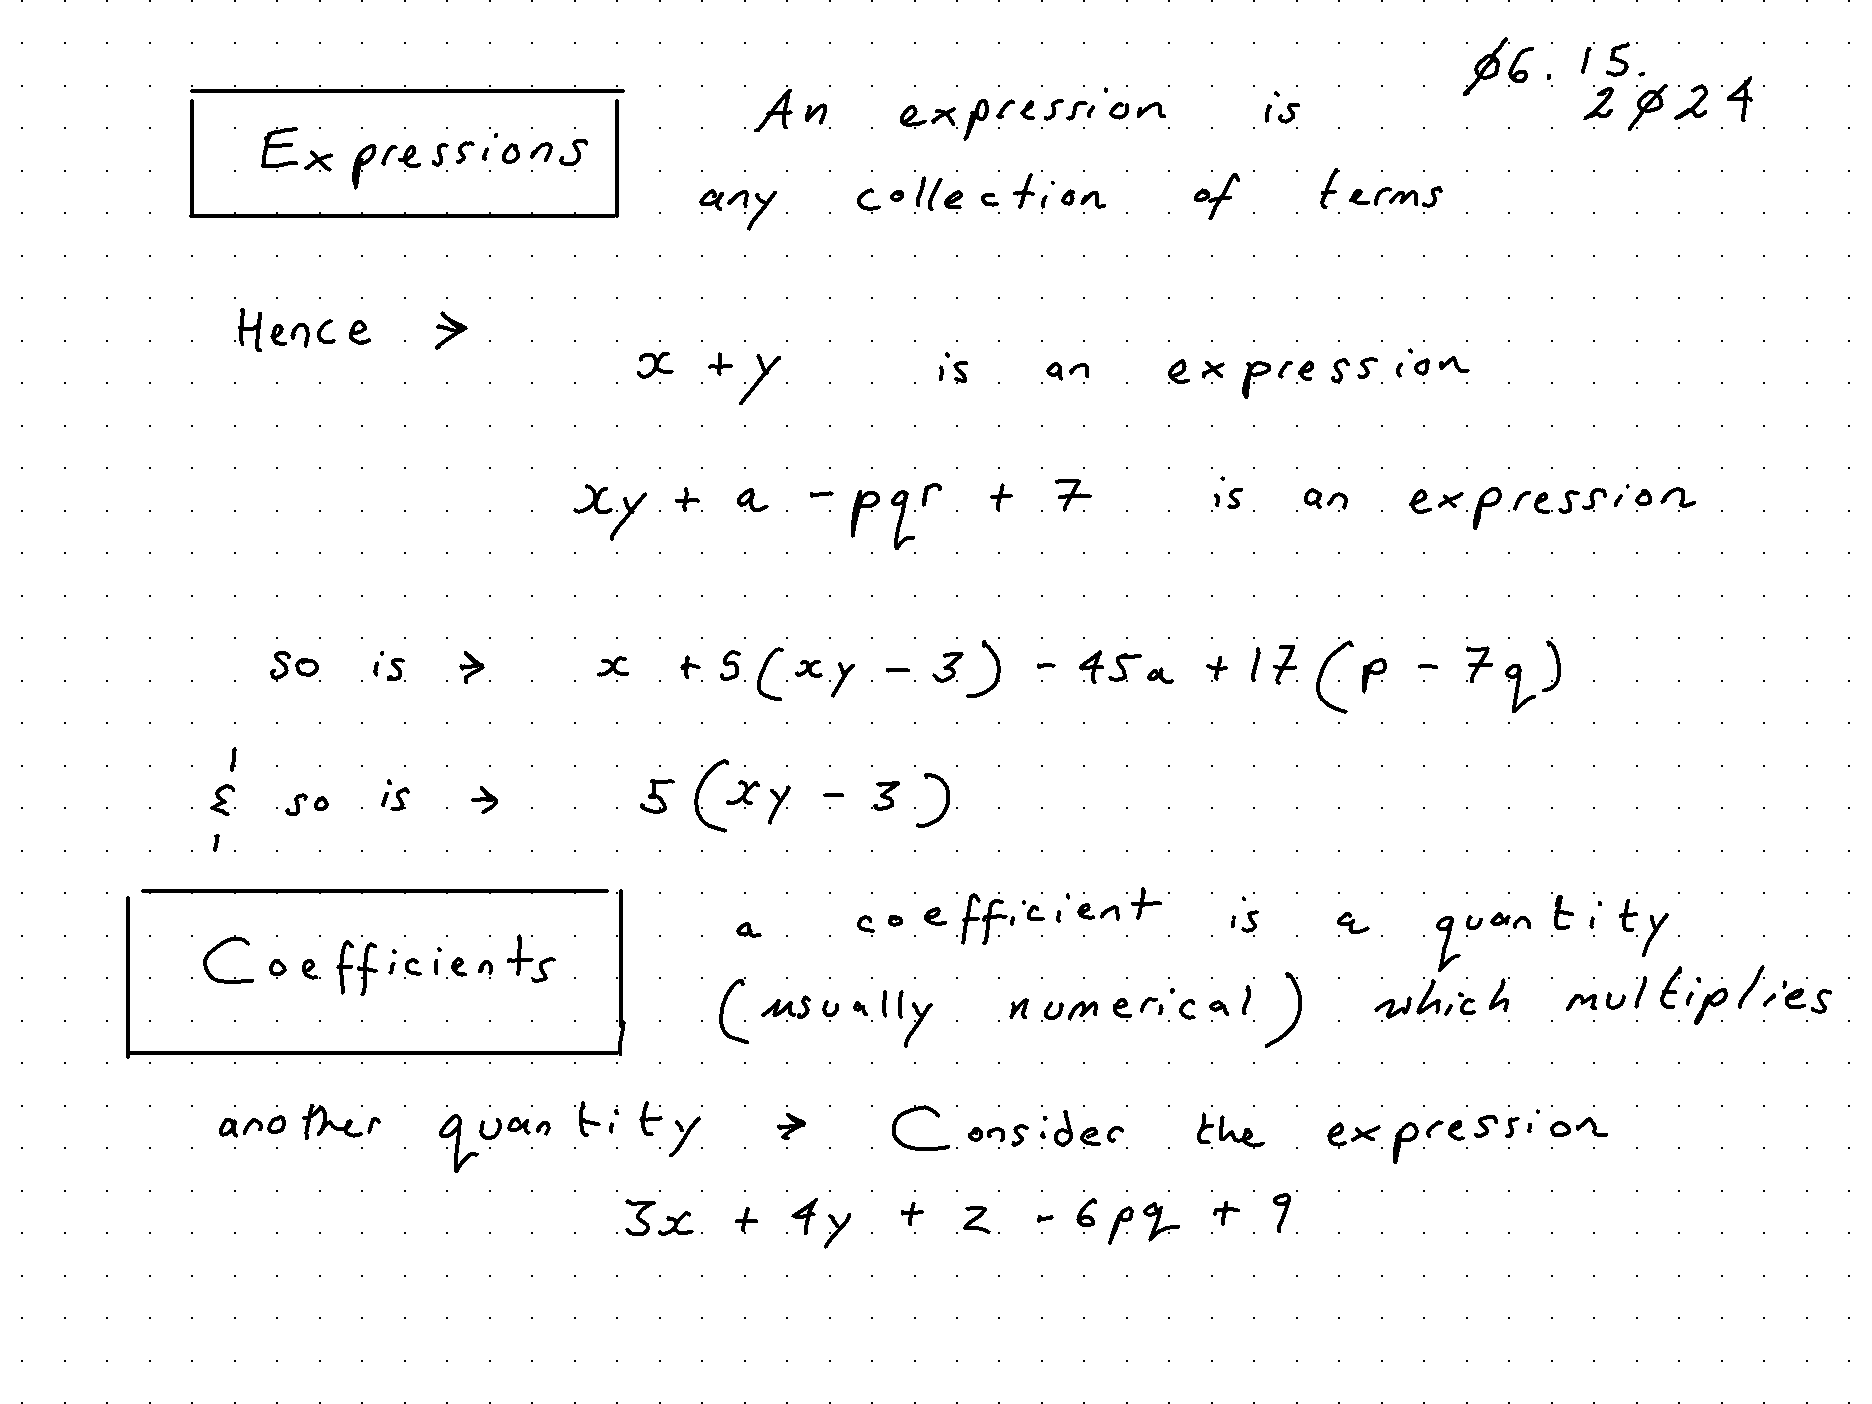 06.15.
2024
Expressions
An expression is
any collection of terms
Hence →
x + y is an expression
xy + a - pqr + 7 is an expression
so is → x + 5(xy - 3) - 45a + 17(p - 7q)
& so is → 5(xy - 3)
Coefficients
a coefficient is a quantity
(usually numerical) which multiplies
another quantity → Consider the expression
3x + 4y + z - 6pq + 9